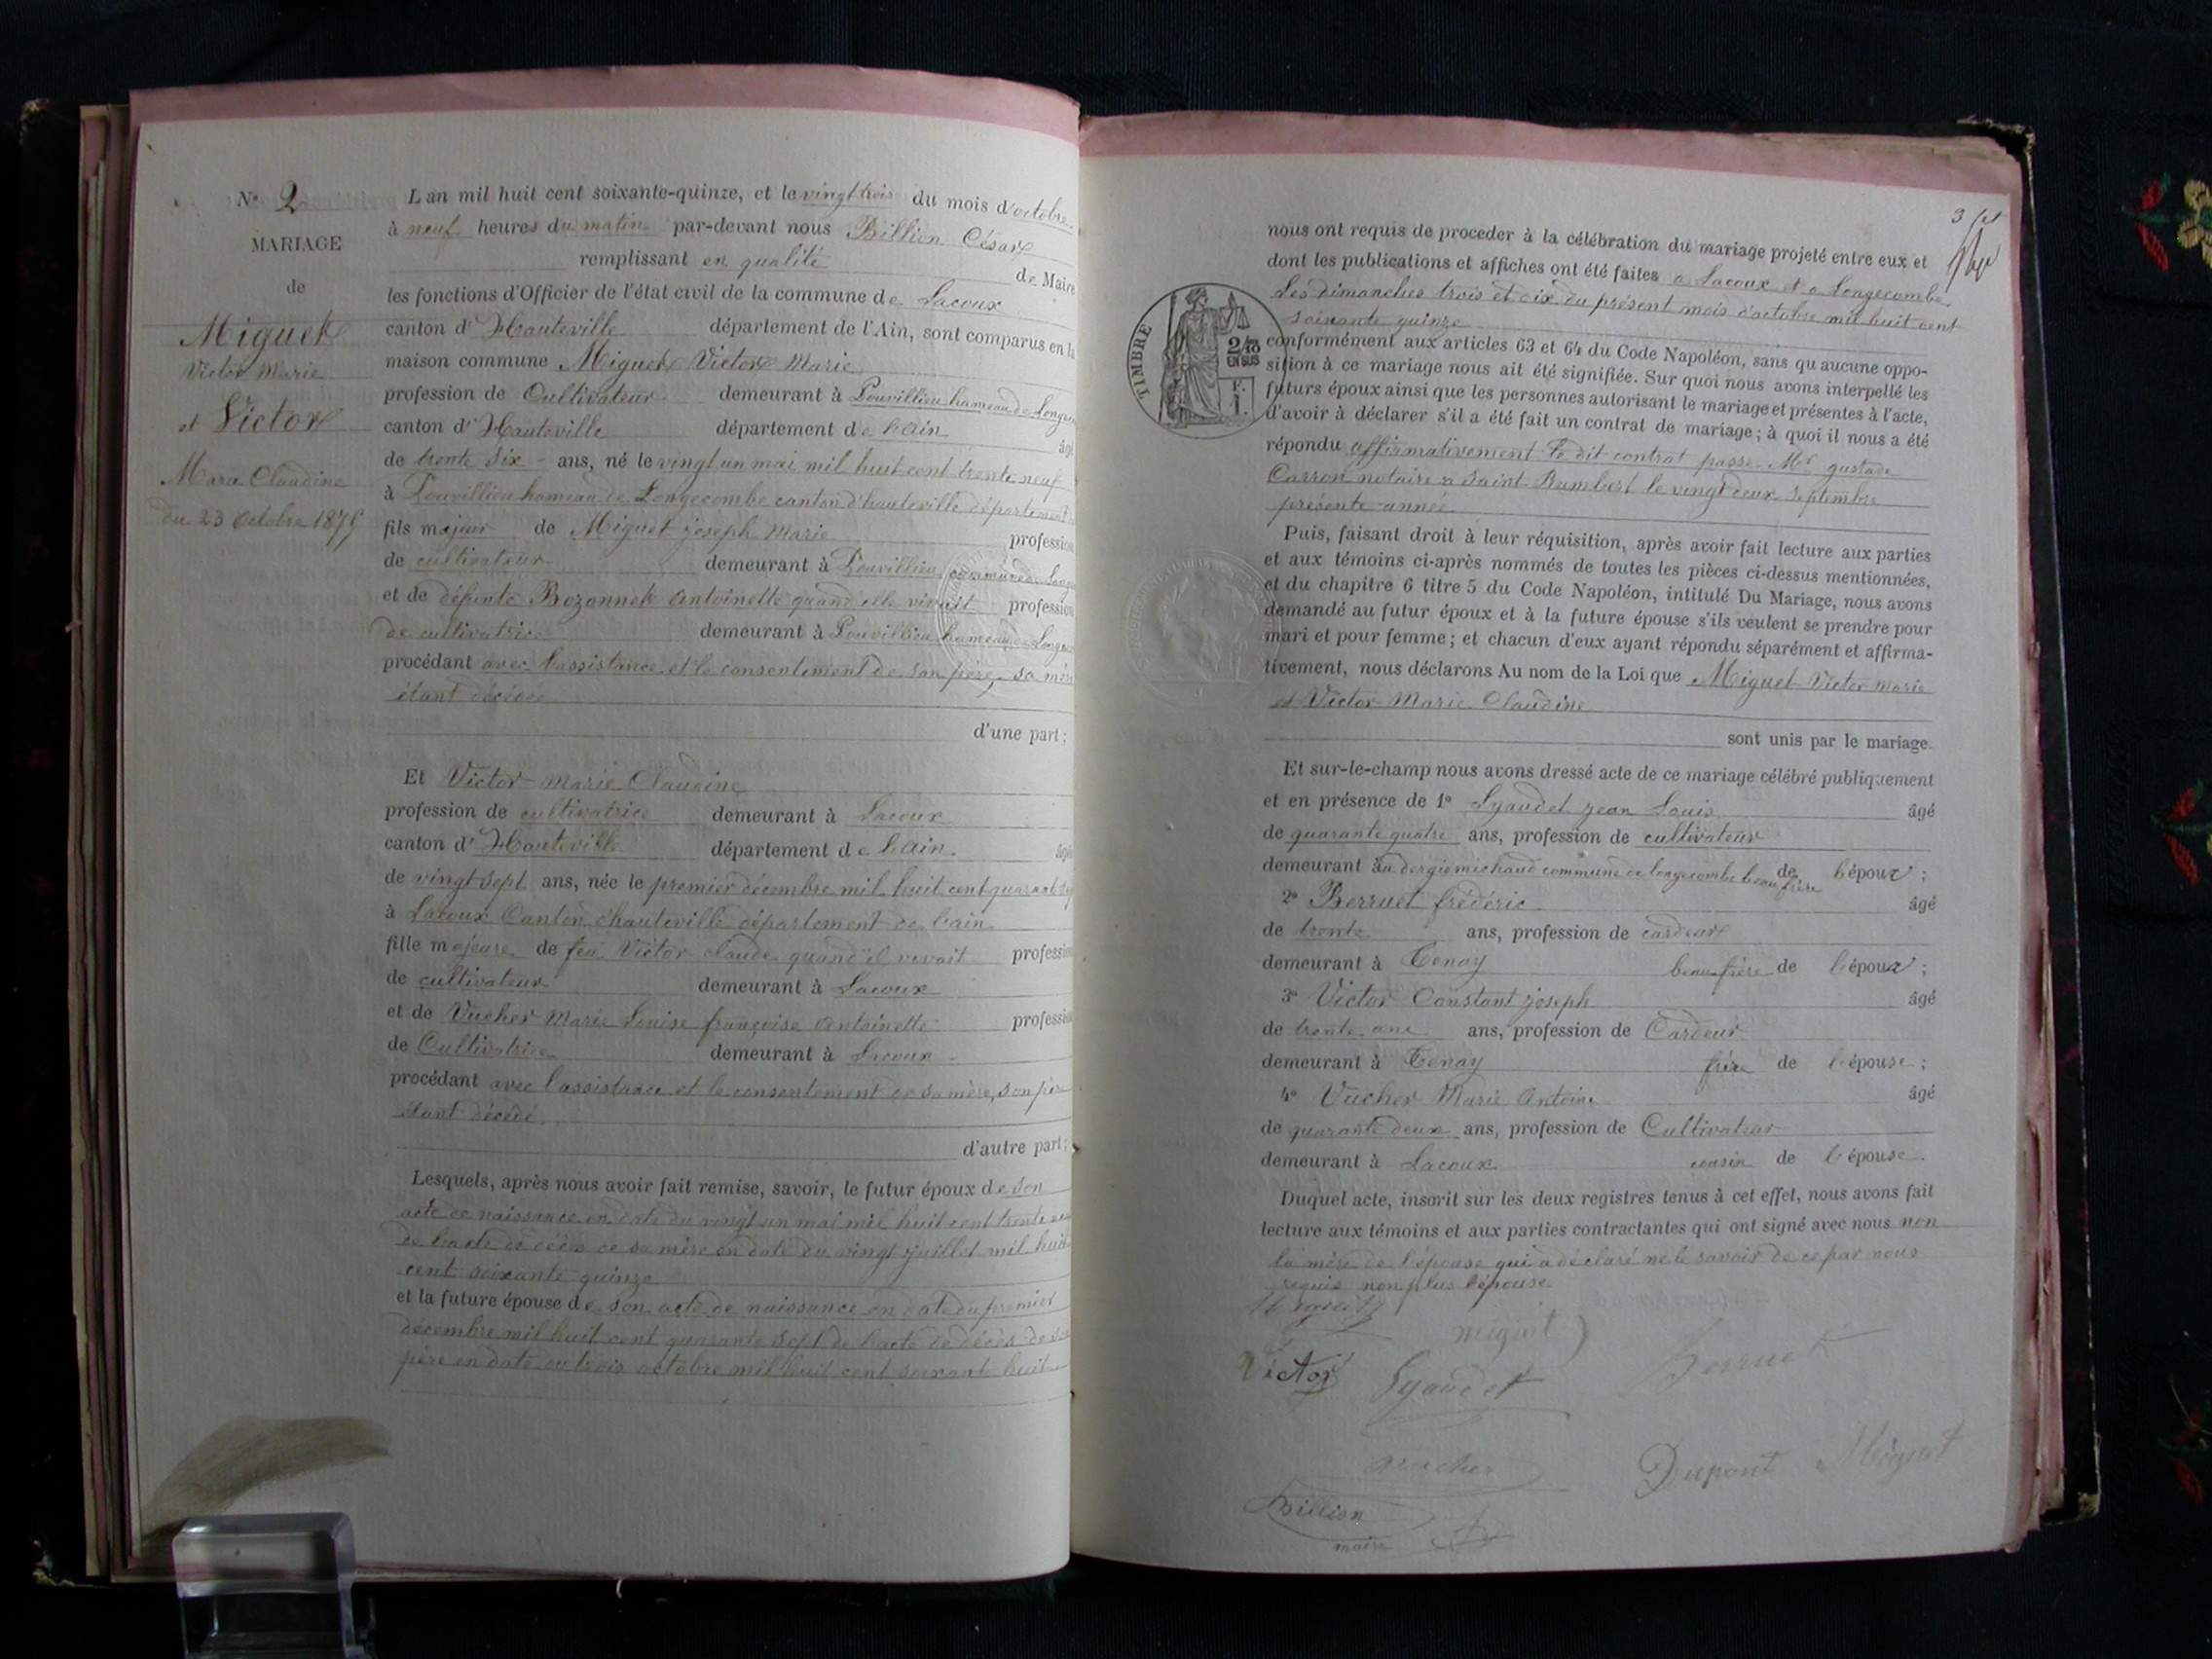 N° 2
MARIAGE
de
Miguet
Victor Marie
et Victor
Marie Claudine
du 23 Octobre 1875
L'an mil huit cent soixante-quinze, et le vingt trois du mois d'octobre
à neuf heures du matin par-devant nous Billion César
remplissant en qualité de Maire
les fonctions d'Officier de l'état civil de la commune de Lacoux
canton d'Hauteville département de l'Ain, sont comparus en la
maison commune Miguet Victor Marie
profession de Cultivateur demeurant à Pouvillieu hameau de
canton d'Hauteville département de l'ain âgé
de trente six ans, né le vingt un mai mil huit cent trente neuf
à Pouvillieu hameau de Longecombe canton d'hauteville département
fils majeur de Miguet joseph Marie profession
de cultivateur demeurant à Pouvillieu commune de
et de défunte Bozonnet Antoinette quand elle vivait profession
de cultivatrice demeurant à Pouvillieu hameau de
procédant avec l'assistance et le consentement de son père, sa mère
étant décédée
d'une part;
Et Victor Marie Claudine
profession de cultivatrice demeurant à Lacoux
canton d'Hauteville département de l'ain âgée
de vingt sept ans, née le premier décembre mil huit cent quarante sept
à Lacoux Canton d'hauteville département de l'ain
fille majeure de feu Victor Claude quand il vivait profession
de cultivateur demeurant à Lacoux
et de Vucher Marie Louise françoise Antoinette profession
de Cultivatrice demeurant à Lacoux
procédant avec l'assistance et le consentement de sa mère, son père
étant décédé
d'autre part;
Lesquels, après nous avoir fait remise, savoir, le futur époux de son
acte de naissance en date du vingt un mai mil huit cent trente neuf
de l'acte de décès de sa mère en date du vingt juillet mil huit
cent soixante quinze
et la future épouse de son acte de naissance en date du premier
décembre mil huit cent quarante sept de l'acte de décès de son
père en date du trois octobre mil huit cent soixante huit
3
nous ont requis de proceder à la célébration du mariage projeté entre eux et
dont les publications et affiches ont été faites à Lacoux et à Longecombe
les dimanches trois et dix du présent mois d'octobre mil huit cent
soixante quinze
TIMBRE
2/10
EN SUS
conformément aux articles 63 et 64 du Code Napoléon, sans qu'aucune oppo-
sition à ce mariage nous ait été signifiée. Sur quoi nous avons interpellé les
futurs époux ainsi que les personnes autorisant le mariage et présentes à l'acte,
d'avoir à déclarer s'il a été fait un contrat de mariage; à quoi il nous a été
répondu affirmativement le dit contrat passé Mr gustave
Carron notaire à Saint Rambert le vingt deux septembre
présente année
Puis, faisant droit à leur réquisition, après avoir fait lecture aux parties
et aux témoins ci-après nommés de toutes les pièces ci-dessus mentionnées,
et du chapitre 6 titre 5 du Code Napoléon, intitulé Du Mariage, nous avons
demandé au futur époux et à la future épouse s'ils veulent se prendre pour
mari et pour femme; et chacun d'eux ayant répondu séparément et affirma-
tivement, nous déclarons Au nom de la Loi que Miguet Victor Marie
et Victor Marie Claudine
sont unis par le mariage.
Et sur-le-champ nous avons dressé acte de ce mariage célébré publiquement
et en présence de 1° Lyaudet jean Louis âgé
de quarante quatre ans, profession de cultivateur
demeurant commune de longecombe beau frère de l'époux;
2° Berruet frédéric âgé
de trente ans, profession de cardeur
demeurant à Tenay beau frère de l'époux;
3° Victor Constant joseph âgé
de trente ans, profession de Cardeur
demeurant à Tenay frère de l'épouse;
4° Vucher Marie Antoine âgé
de quarante deux ans, profession de Cultivateur
demeurant à Lacoux cousin de l'épouse.
Duquel acte, inscrit sur les deux registres tenus à cet effet, nous avons fait
lecture aux témoins et aux parties contractantes qui ont signé avec nous non
la mère de l'épouse qui a déclaré ne le savoir de ce par nous
requis non plus l'épouse
miguet
Victor Lyaudet Berruet
vucher Dupont Miguet
Billion
maire